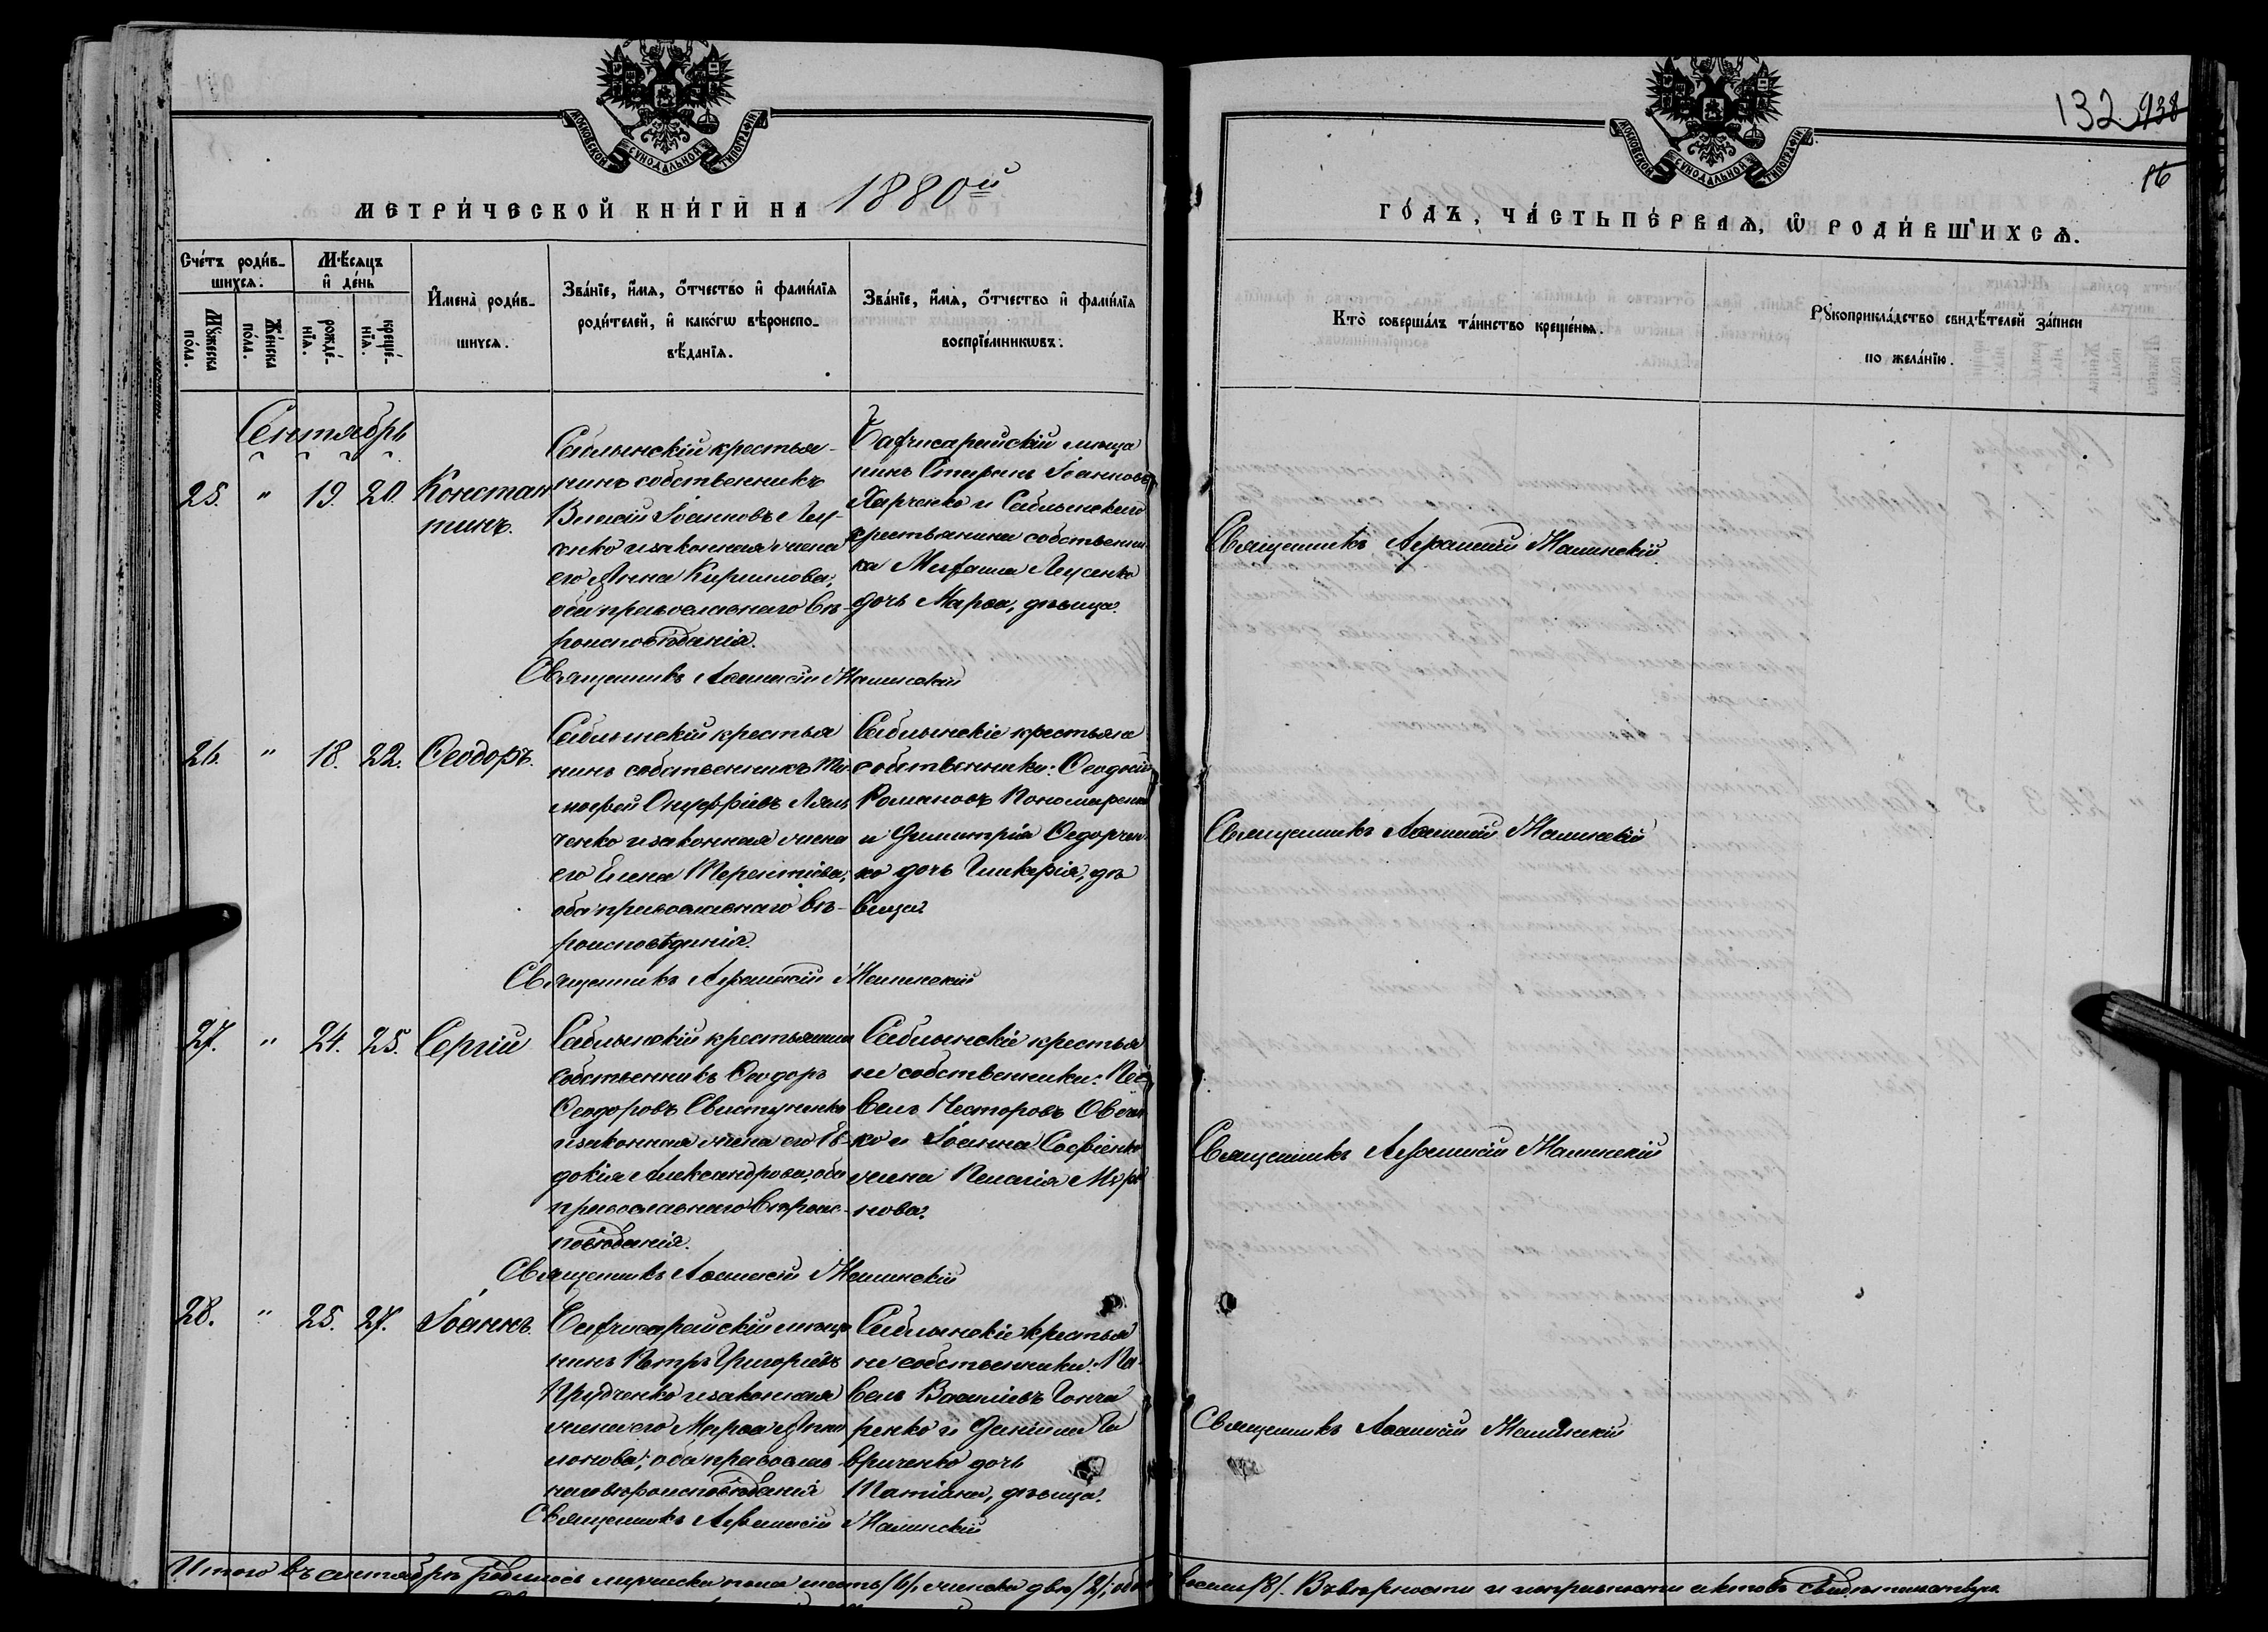 МОСКОВСКОЙ СУНОДАЛЬНОЙ ТИПОГРАФІИ
МЕТРИ́ЧЕСКОЙ КНИ́ГИ НА 1880й
Сче́тъ роди́в-
шихсѧ.
Мꙋ́жеска
по́ла.
Же́нска
по́ла.
Мѣ́сѧцъ
и҆ де́нь
рожде́-
нїѧ.
креще́-
нїѧ.
И҆мена̀ роди́в-
шихсѧ.
Зва́нїе, и҆́мѧ, ѻ҆́тчество и҆ фами́лїѧ
роди́телей, и҆ како́гѡ вѣроиспо-
вѣ́данїѧ.
Зва́нїе, и҆́мѧ, ѻ҆́тчество и҆ фами́лїѧ
воспрїе́мникѡвъ.
Сентябрь
25. " 19. 20. Констан
тинъ.
Саблынскій крестья-
нинъ собственникъ
Василій Іоанновъ Лус-
енко и законная жена
его Анна Кириллова,
оба православнаго вѣ-
роисповѣданія.
Бахчисарайскій мѣща
нинъ Стефанъ Іоанновъ
Харченко и Саблынскаго
крестьянина собственни
ка Михаила Лусенко
дочь Марѳа, дѣвица.
Священникъ Аѳанасій Малинскій
26. " 18. 22. Ѳеодоръ.
Саблынскій крестья
нинъ собственникъ Ти-
моѳей Онуфріевъ Ляш
ченко и законная жена
его Елена Терентіева,
оба православнаго вѣ-
роисповѣданія.
Саблынскіе крестьяне
собственники: Ѳеодосій
Романовъ Пономаренко
и Димитрія Ѳедорчен-
ко дочь Гликерія, дѣ
вица.
Священникъ Аѳанасій Малинскій
27. " 24. 25. Сергій
Саблынскій крестьянинъ
собственникъ Ѳеодоръ
Ѳеодоровъ Свистуненко
и законная жена его Ев-
докія Александрова, оба
православнаго вѣроис-
повѣданія.
Саблынскіе крестья
не собственники: Па
велъ Несторовъ Овчен
ко и Іоанна Софіенко
жена Пелагія Мар
нова.
Священникъ Аѳанасій Малинскій
28. " 25. 27. Іоаннъ.
Бахчисарайскій мѣща
нинъ Петръ Григорьевъ
Прудченко и законная
жена его Марѳа Фили
монова, оба православ
наго вѣроисповѣданія
Саблынскіе крестья
не собственники: Па-
велъ Василіевъ Гонча
ренко и Даніила Га
вриченко дочь
Татіана, дѣвица.
Священникъ Аѳанасій Малинскій
Итого въ сентябрѣ родилось мужеска пола шесть /6/, женска двѣ /2/, обоего
МОСКОВСКОЙ СУНОДАЛЬНОЙ ТИПОГРАФІИ
132 938
16
ГО́ДЪ, ЧА́СТЬ ПЕ́РВАѦ, Ѡ҆ РОДИ́ВШИХСѦ.
Кто̀ соверша́лъ та́инство креще́нїѧ.
Рꙋкоприкла́дство свидѣ́телей за́писи
по жела́нїю.
Священникъ Аѳанасій Малинскій
Священникъ Аѳанасій Малинскій
Священникъ Аѳанасій Малинскій
Священникъ Аѳанасій Малинскій
восемь /8/. Въ вѣрности и исправности актовъ свидѣтельствуемъ